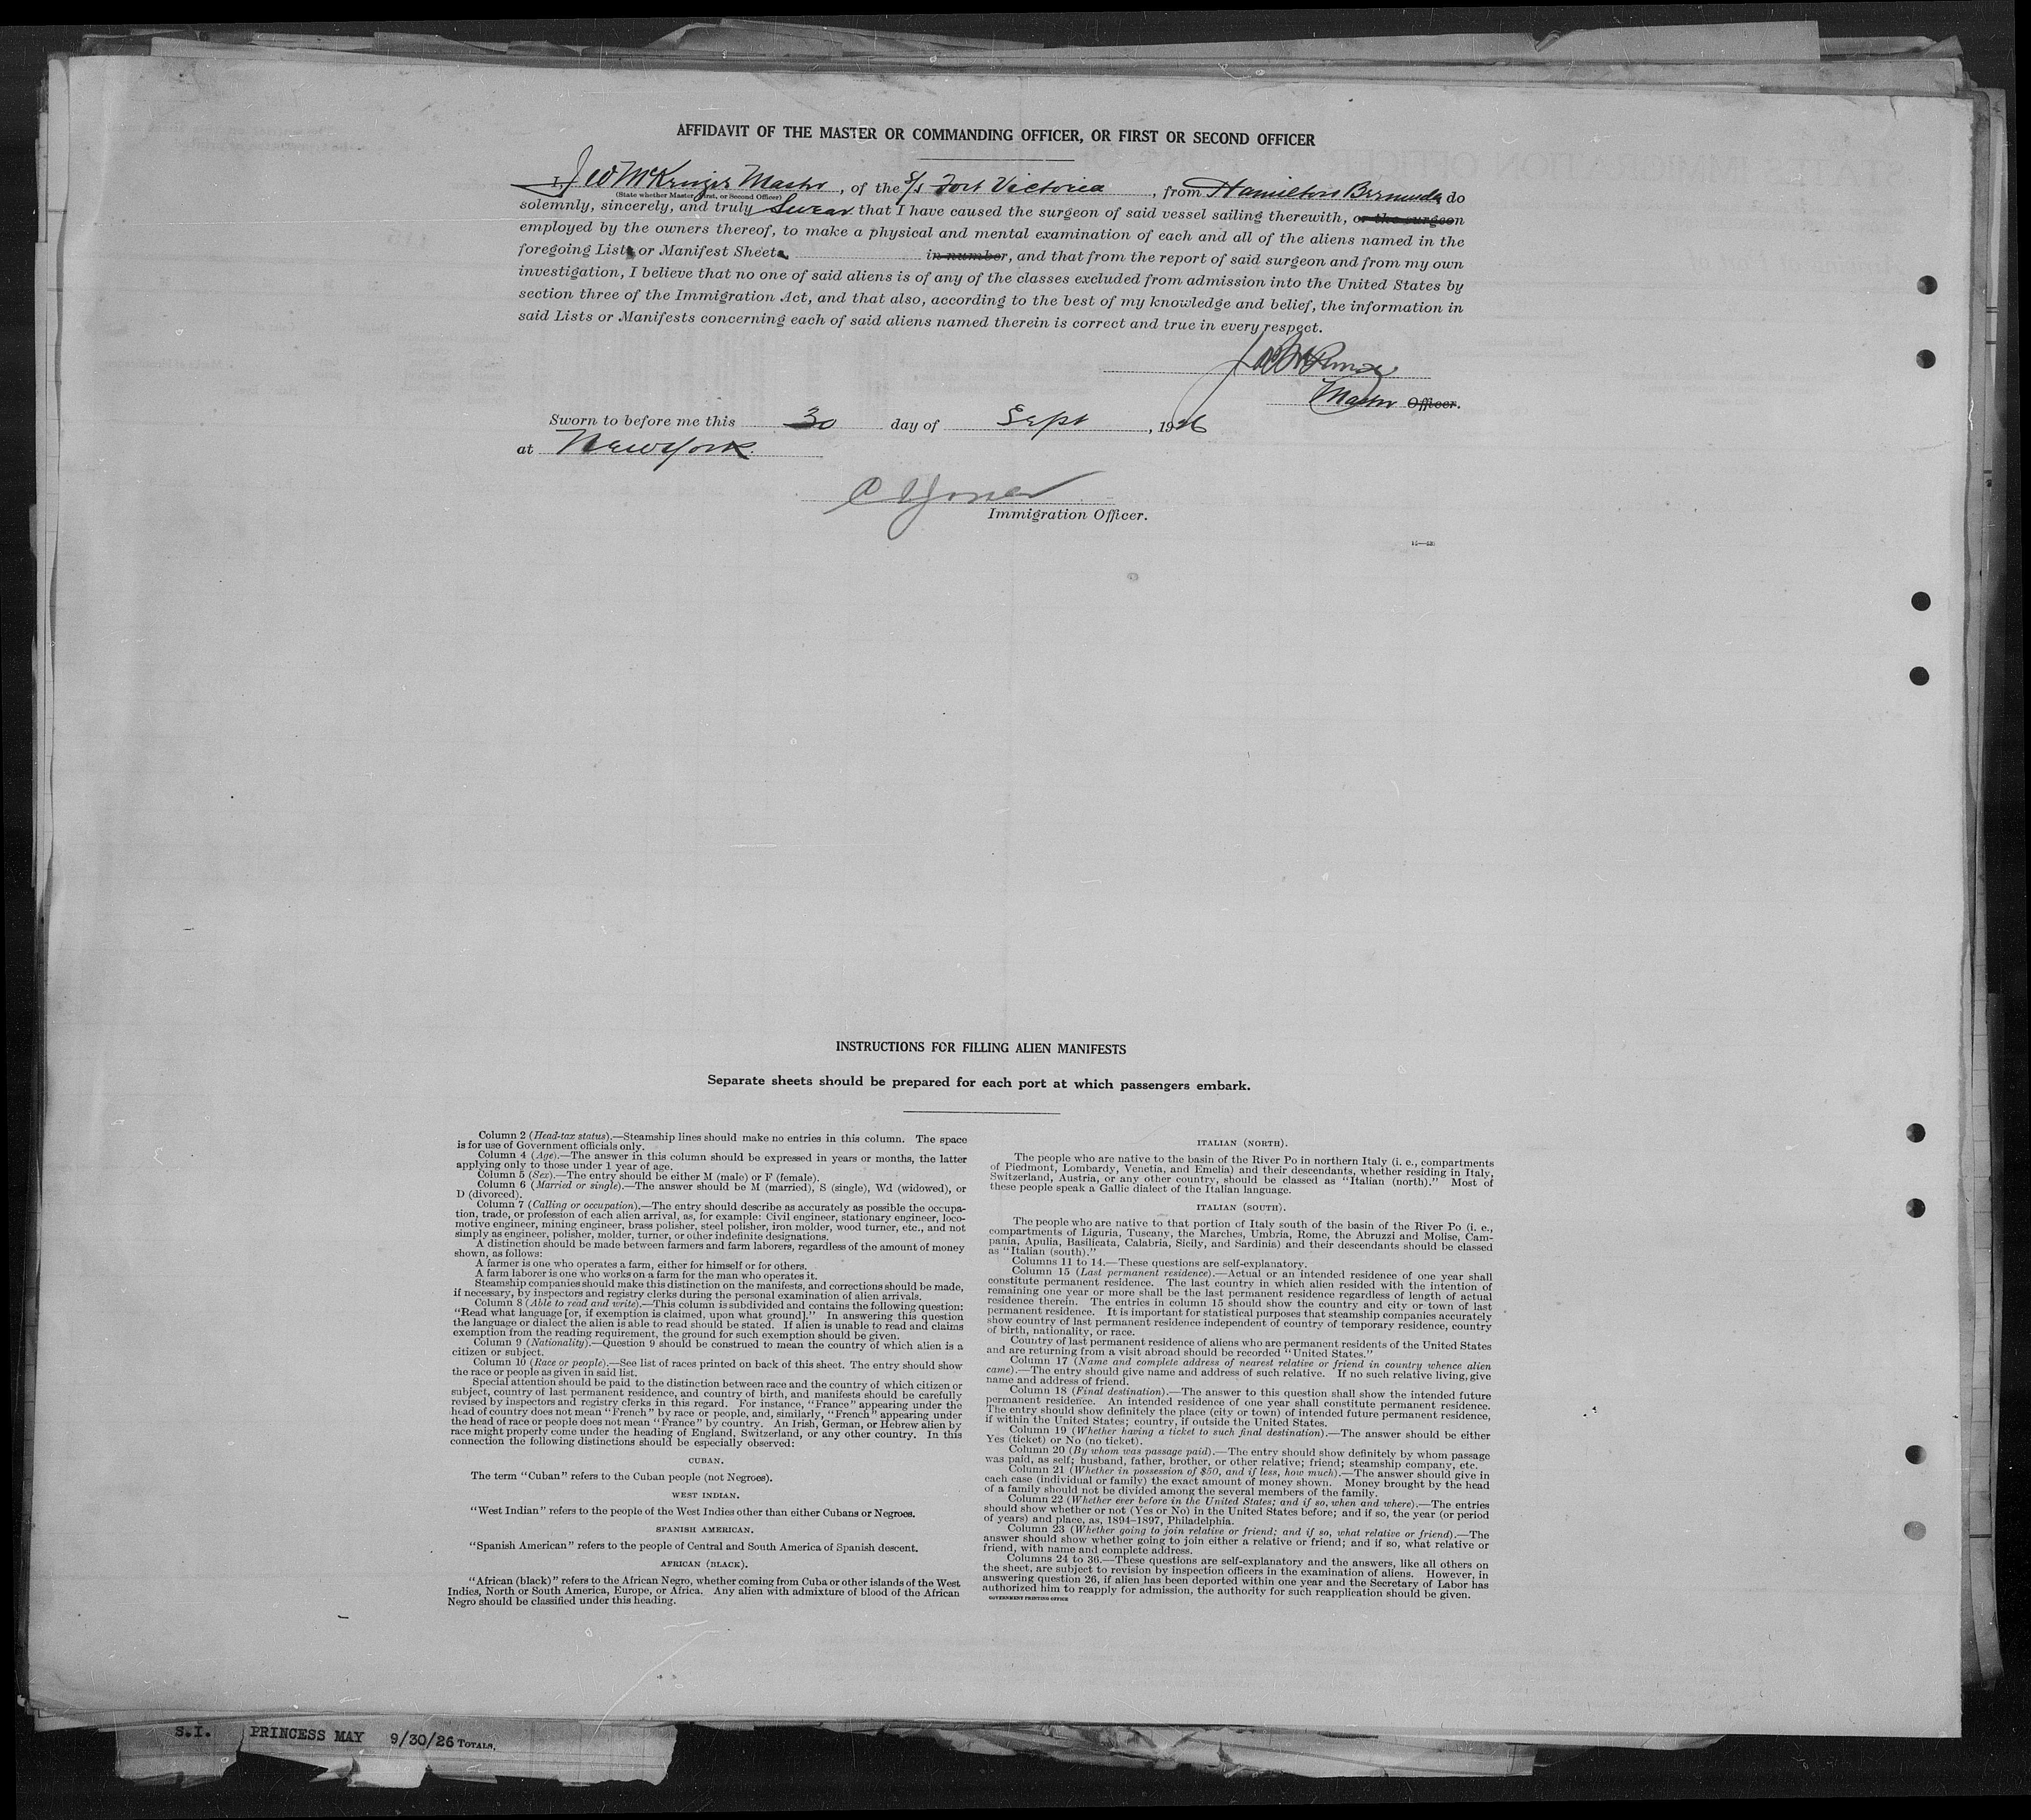 AFFIDAVIT OF THE MASTER OR COMMANDING OFFICER, OR FIRST OR SECOND OFFICER
I, J W McKenzie Master, of the S/s Fort Victoria, from Hamilton Bermuda do
(State whether Master, First, or Second Officer)
solemnly, sincerely, and truly Swear that I have caused the surgeon of said vessel sailing therewith, or the surgeon
employed by the owners thereof, to make a physical and mental examination of each and all of the aliens named in the
foregoing Lists or Manifest Sheets in number, and that from the report of said surgeon and from my own
investigation, I believe that no one of said aliens is of any of the classes excluded from admission into the United States by
section three of the Immigration Act, and that also, according to the best of my knowledge and belief, the information in
said Lists or Manifests concerning each of said aliens named therein is correct and true in every respect.
Master Officer.
Sworn to before me this 30 day of Sept, 1926
at New York.
Immigration Officer.
INSTRUCTIONS FOR FILLING ALIEN MANIFESTS
Separate sheets should be prepared for each port at which passengers embark.
Column 2 (Head-tax status).—Steamship lines should make no entries in this column. The space
is for use of Government officials only.
Column 4 (Age).—The answer in this column should be expressed in years or months, the latter
applying only to those under 1 year of age.
Column 5 (Sex).—The entry should be either M (male) or F (female).
Column 6 (Married or single).—The answer should be M (married), S (single), Wd (widowed), or
D (divorced).
Column 7 (Calling or occupation).—The entry should describe as accurately as possible the occupa-
tion, trade, or profession of each alien arrival, as, for example: Civil engineer, stationary engineer, loco-
motive engineer, mining engineer, brass polisher, steel polisher, iron molder, wood turner, etc., and not
simply as engineer, polisher, molder, turner, or other indefinite designations.
A distinction should be made between farmers and farm laborers, regardless of the amount of money
shown, as follows:
A farmer is one who operates a farm, either for himself or for others.
A farm laborer is one who works on a farm for the man who operates it.
Steamship companies should make this distinction on the manifests, and corrections should be made,
if necessary, by inspectors and registry clerks during the personal examination of alien arrivals.
Column 8 (Able to read and write).—This column is subdivided and contains the following question:
"Read what language [or, if exemption is claimed, upon what ground]." In answering this question
the language or dialect the alien is able to read should be stated. If alien is unable to read and claims
exemption from the reading requirement, the ground for such exemption should be given.
Column 9 (Nationality).—Question 9 should be construed to mean the country of which alien is a
citizen or subject.
Column 10 (Race or people).—See list of races printed on back of this sheet. The entry should show
the race or people as given in said list.
Special attention should be paid to the distinction between race and the country of which citizen or
subject, country of last permanent residence, and country of birth, and manifests should be carefully
revised by inspectors and registry clerks in this regard. For instance, "France" appearing under the
head of country does not mean "French" by race or people, and, similarly, "French" appearing under
the head of race or people does not mean "France" by country. An Irish, German, or Hebrew alien by
race might properly come under the heading of England, Switzerland, or any other country. In this
connection the following distinctions should be especially observed:
CUBAN.
The term "Cuban" refers to the Cuban people (not Negroes).
WEST INDIAN.
"West Indian" refers to the people of the West Indies other than either Cubans or Negroes.
SPANISH AMERICAN.
"Spanish American" refers to the people of Central and South America of Spanish descent.
AFRICAN (BLACK).
"African (black)" refers to the African Negro, whether coming from Cuba or other islands of the West
Indies, North or South America, Europe, or Africa. Any alien with admixture of blood of the African
Negro should be classified under this heading.
ITALIAN (NORTH).
The people who are native to the basin of the River Po in northern Italy (i. e., compartments
of Piedmont, Lombardy, Venetia, and Emelia) and their descendants, whether residing in Italy,
Switzerland, Austria, or any other country, should be classed as "Italian (north)." Most of
these people speak a Gallic dialect of the Italian language.
ITALIAN (SOUTH).
The people who are native to that portion of Italy south of the basin of the River Po (i. e.,
compartments of Liguria, Tuscany, the Marches, Umbria, Rome, the Abruzzi and Molise, Cam-
pania, Apulia, Basilicata, Calabria, Sicily, and Sardinia) and their descendants should be classed
as "Italian (south)."
Columns 11 to 14.—These questions are self-explanatory.
Column 15 (Last permanent residence).—Actual or an intended residence of one year shall
constitute permanent residence. The last country in which alien resided with the intention of
remaining one year or more shall be the last permanent residence regardless of length of actual
residence therein. The entries in column 15 should show the country and city or town of last
permanent residence. It is important for statistical purposes that steamship companies accurately
show country of last permanent residence independent of country of temporary residence, country
of birth, nationality, or race.
Country of last permanent residence of aliens who are permanent residents of the United States
and are returning from a visit abroad should be recorded "United States."
Column 17 (Name and complete address of nearest relative or friend in country whence alien
came).—The entry should give name and address of such relative. If no such relative living, give
name and address of friend.
Column 18 (Final destination).—The answer to this question shall show the intended future
permanent residence. An intended residence of one year shall constitute permanent residence.
The entry should show definitely the place (city or town) of intended future permanent residence,
if within the United States; country, if outside the United States.
Column 19 (Whether having a ticket to such final destination).—The answer should be either
Yes (ticket) or No (no ticket).
Column 20 (By whom was passage paid).—The entry should show definitely by whom passage
was paid, as self; husband, father, brother, or other relative; friend; steamship company, etc.
Column 21 (Whether in possession of $50, and if less, how much).—The answer should give in
each case (individual or family) the exact amount of money shown. Money brought by the head
of a family should not be divided among the several members of the family.
Column 22 (Whether ever before in the United States; and if so, when and where).—The entries
should show whether or not (Yes or No) in the United States before; and if so, the year (or period
of years) and place, as, 1894–1897, Philadelphia.
Column 23 (Whether going to join relative or friend; and if so, what relative or friend).—The
answer should show whether going to join either a relative or friend; and if so, what relative or
friend, with name and complete address.
Columns 24 to 36.—These questions are self-explanatory and the answers, like all others on
the sheet, are subject to revision by inspection officers in the examination of aliens. However, in
answering question 26, if alien has been deported within one year and the Secretary of Labor has
authorized him to reapply for admission, the authority for such reapplication should be given.
GOVERNMENT PRINTING OFFICE
S.I. PRINCESS MAY 9/30/26 TOTALS.